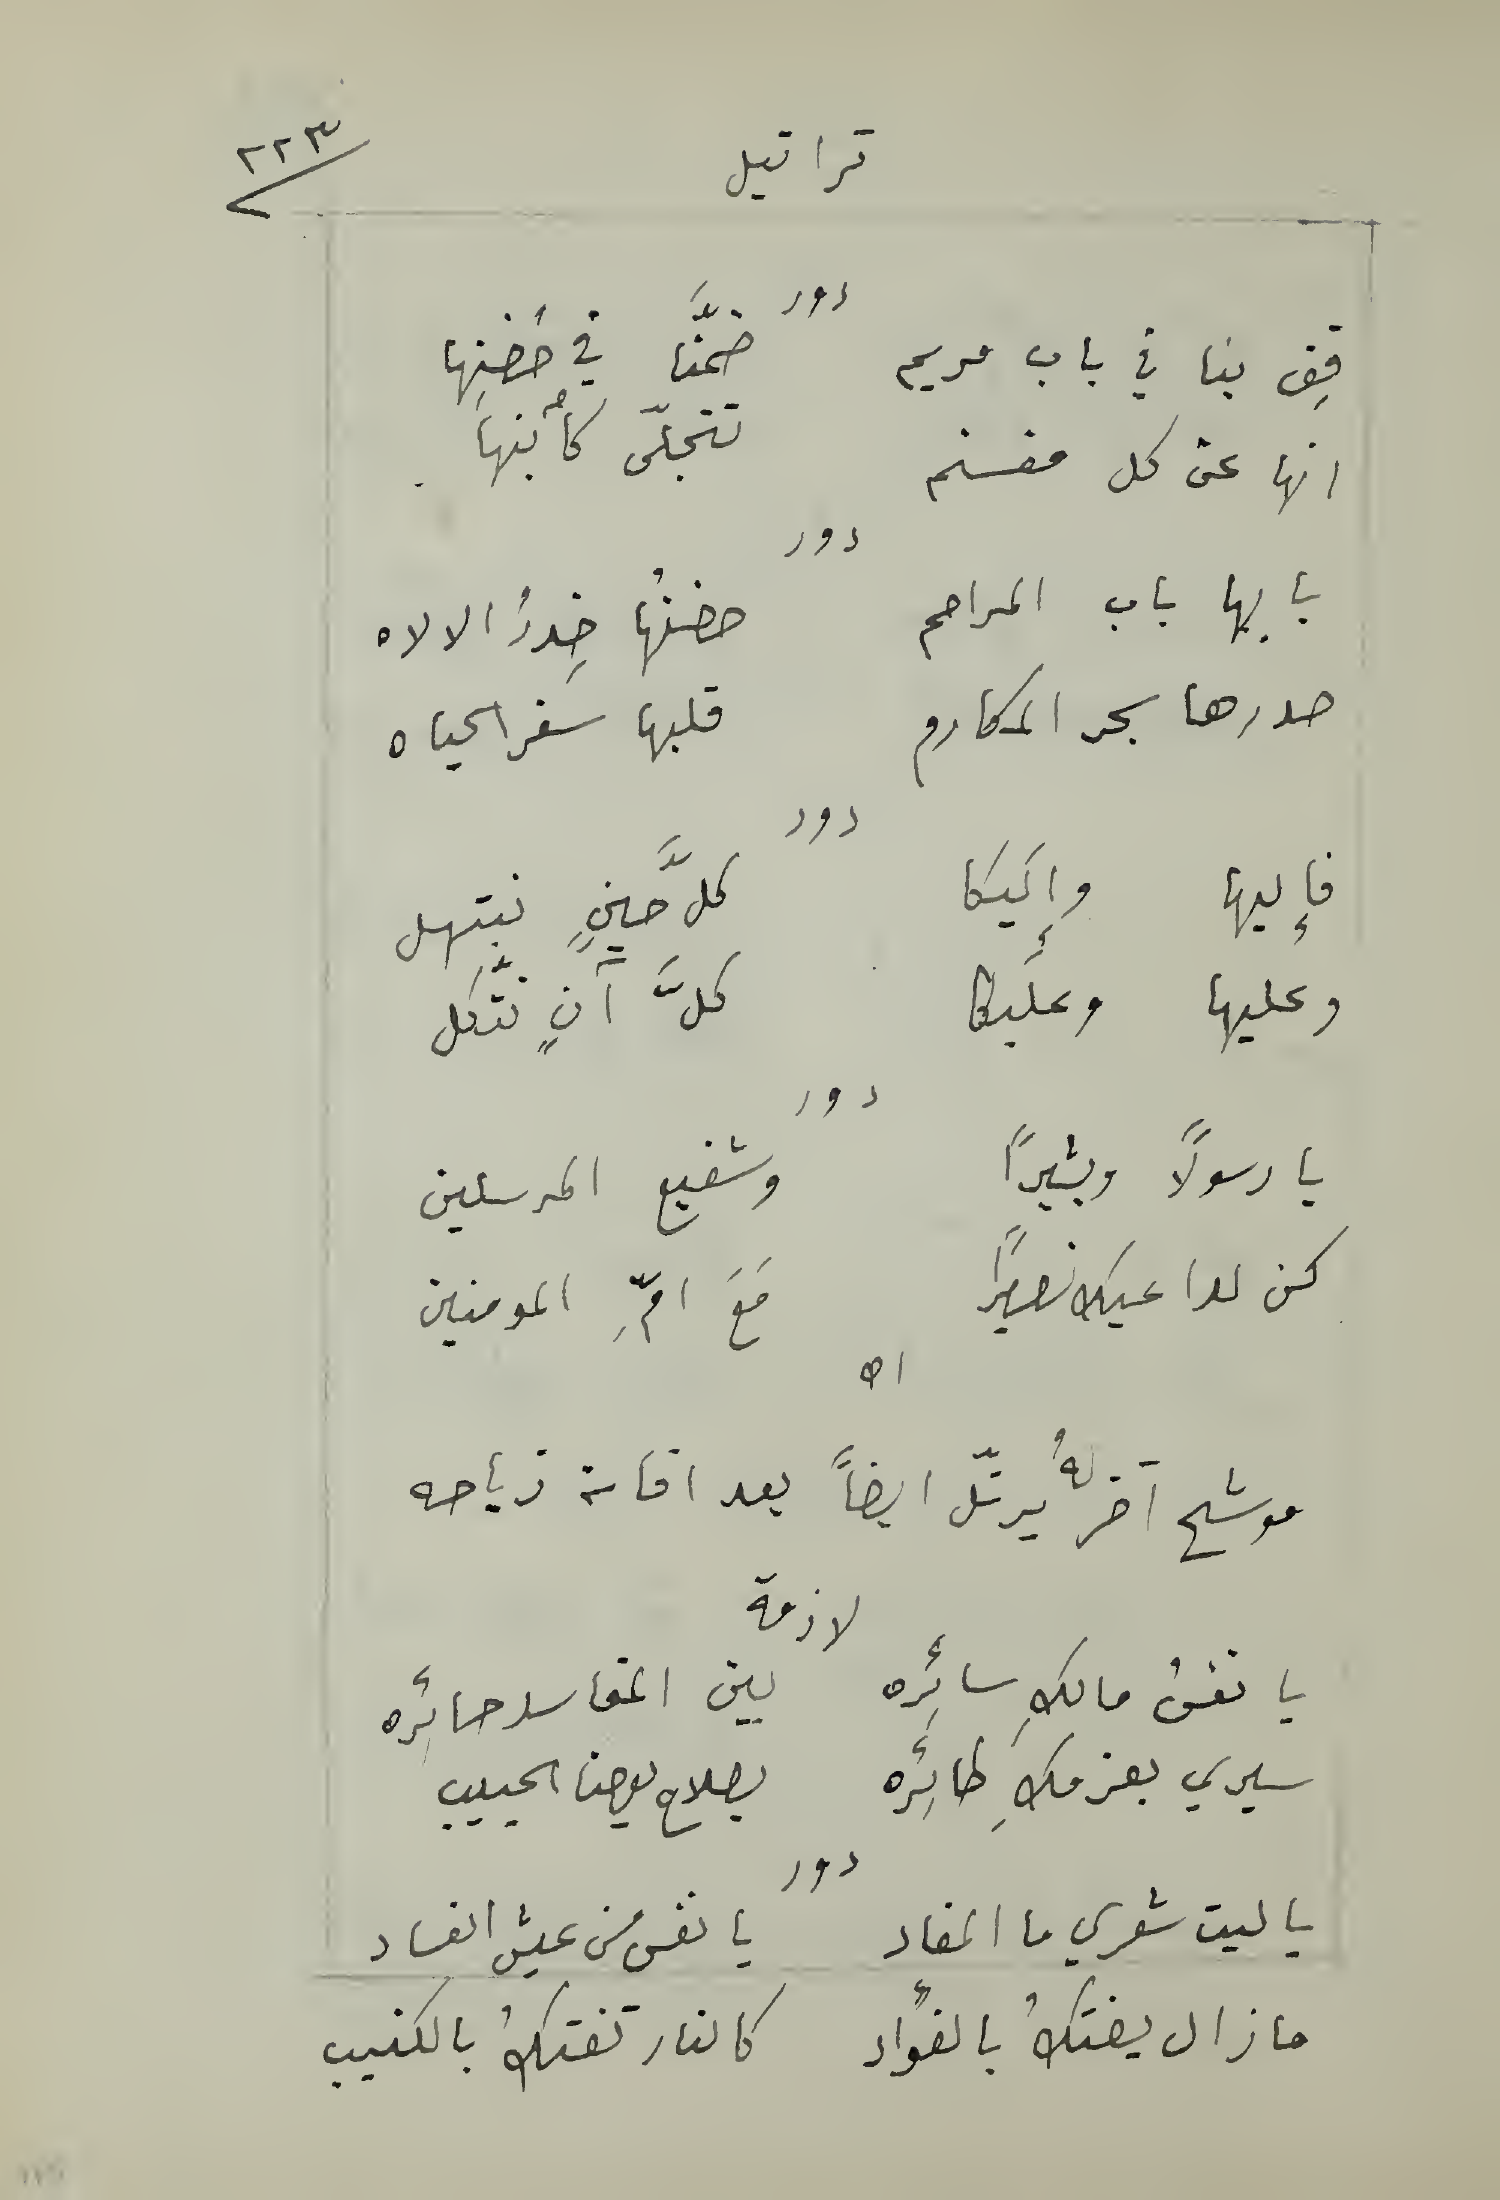 تراتيل
٢٢٣
دور
قِف بنا في باب مريم ضمَّنا في حُضنِها
انها عن كل مغنم تتجلّى كأبنها
دور
بابها باب المراحم حضنُها خِدرُ الالاه
صدرها بحر المكارم قلبها سَفر الحياه
دور
فإليها وإلَيكا كلَّ حينٍ نبتهل
وعليها وعلَيكا كلَّ آنٍ نتّكل
دور
يا رسولاً وبشيراً وشفيع المرسلين
كن لداعيك نصيراً مَعَ امِّ المومنين
اه
موشح آخر لهُ يرتّل ايضاً بعد اقامة زياحه
لازمة
يا نفسُ مالكِ سائِره بين المفاسد حائِره
سيري بعزمكِ طائِره بصلاح يوحنا الحبيب
دور
يا ليت شعري ما المفاد يا نفس من عيش الفساد
ما زال يفتكُ بالفؤاد كالنار تفتكُ بالكئيب